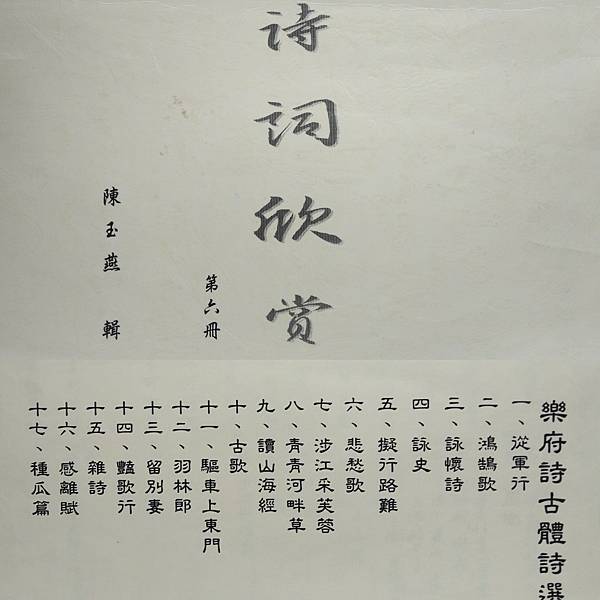 詩詞欣賞
第六冊
陳玉燕 輯
樂府詩古體詩選
一、從軍行
二、鴻鵠歌
三、詠懷詩
四、詠史
五、擬行路難
六、悲愁歌
七、涉江采芙蓉
八、青青河畔草
九、讀山海經
十、古歌
十一、驅車上東門
十二、羽林郎
十三、留別妻
十四、豔歌行
十五、雜詩
十六、感離賦
十七、種瓜篇